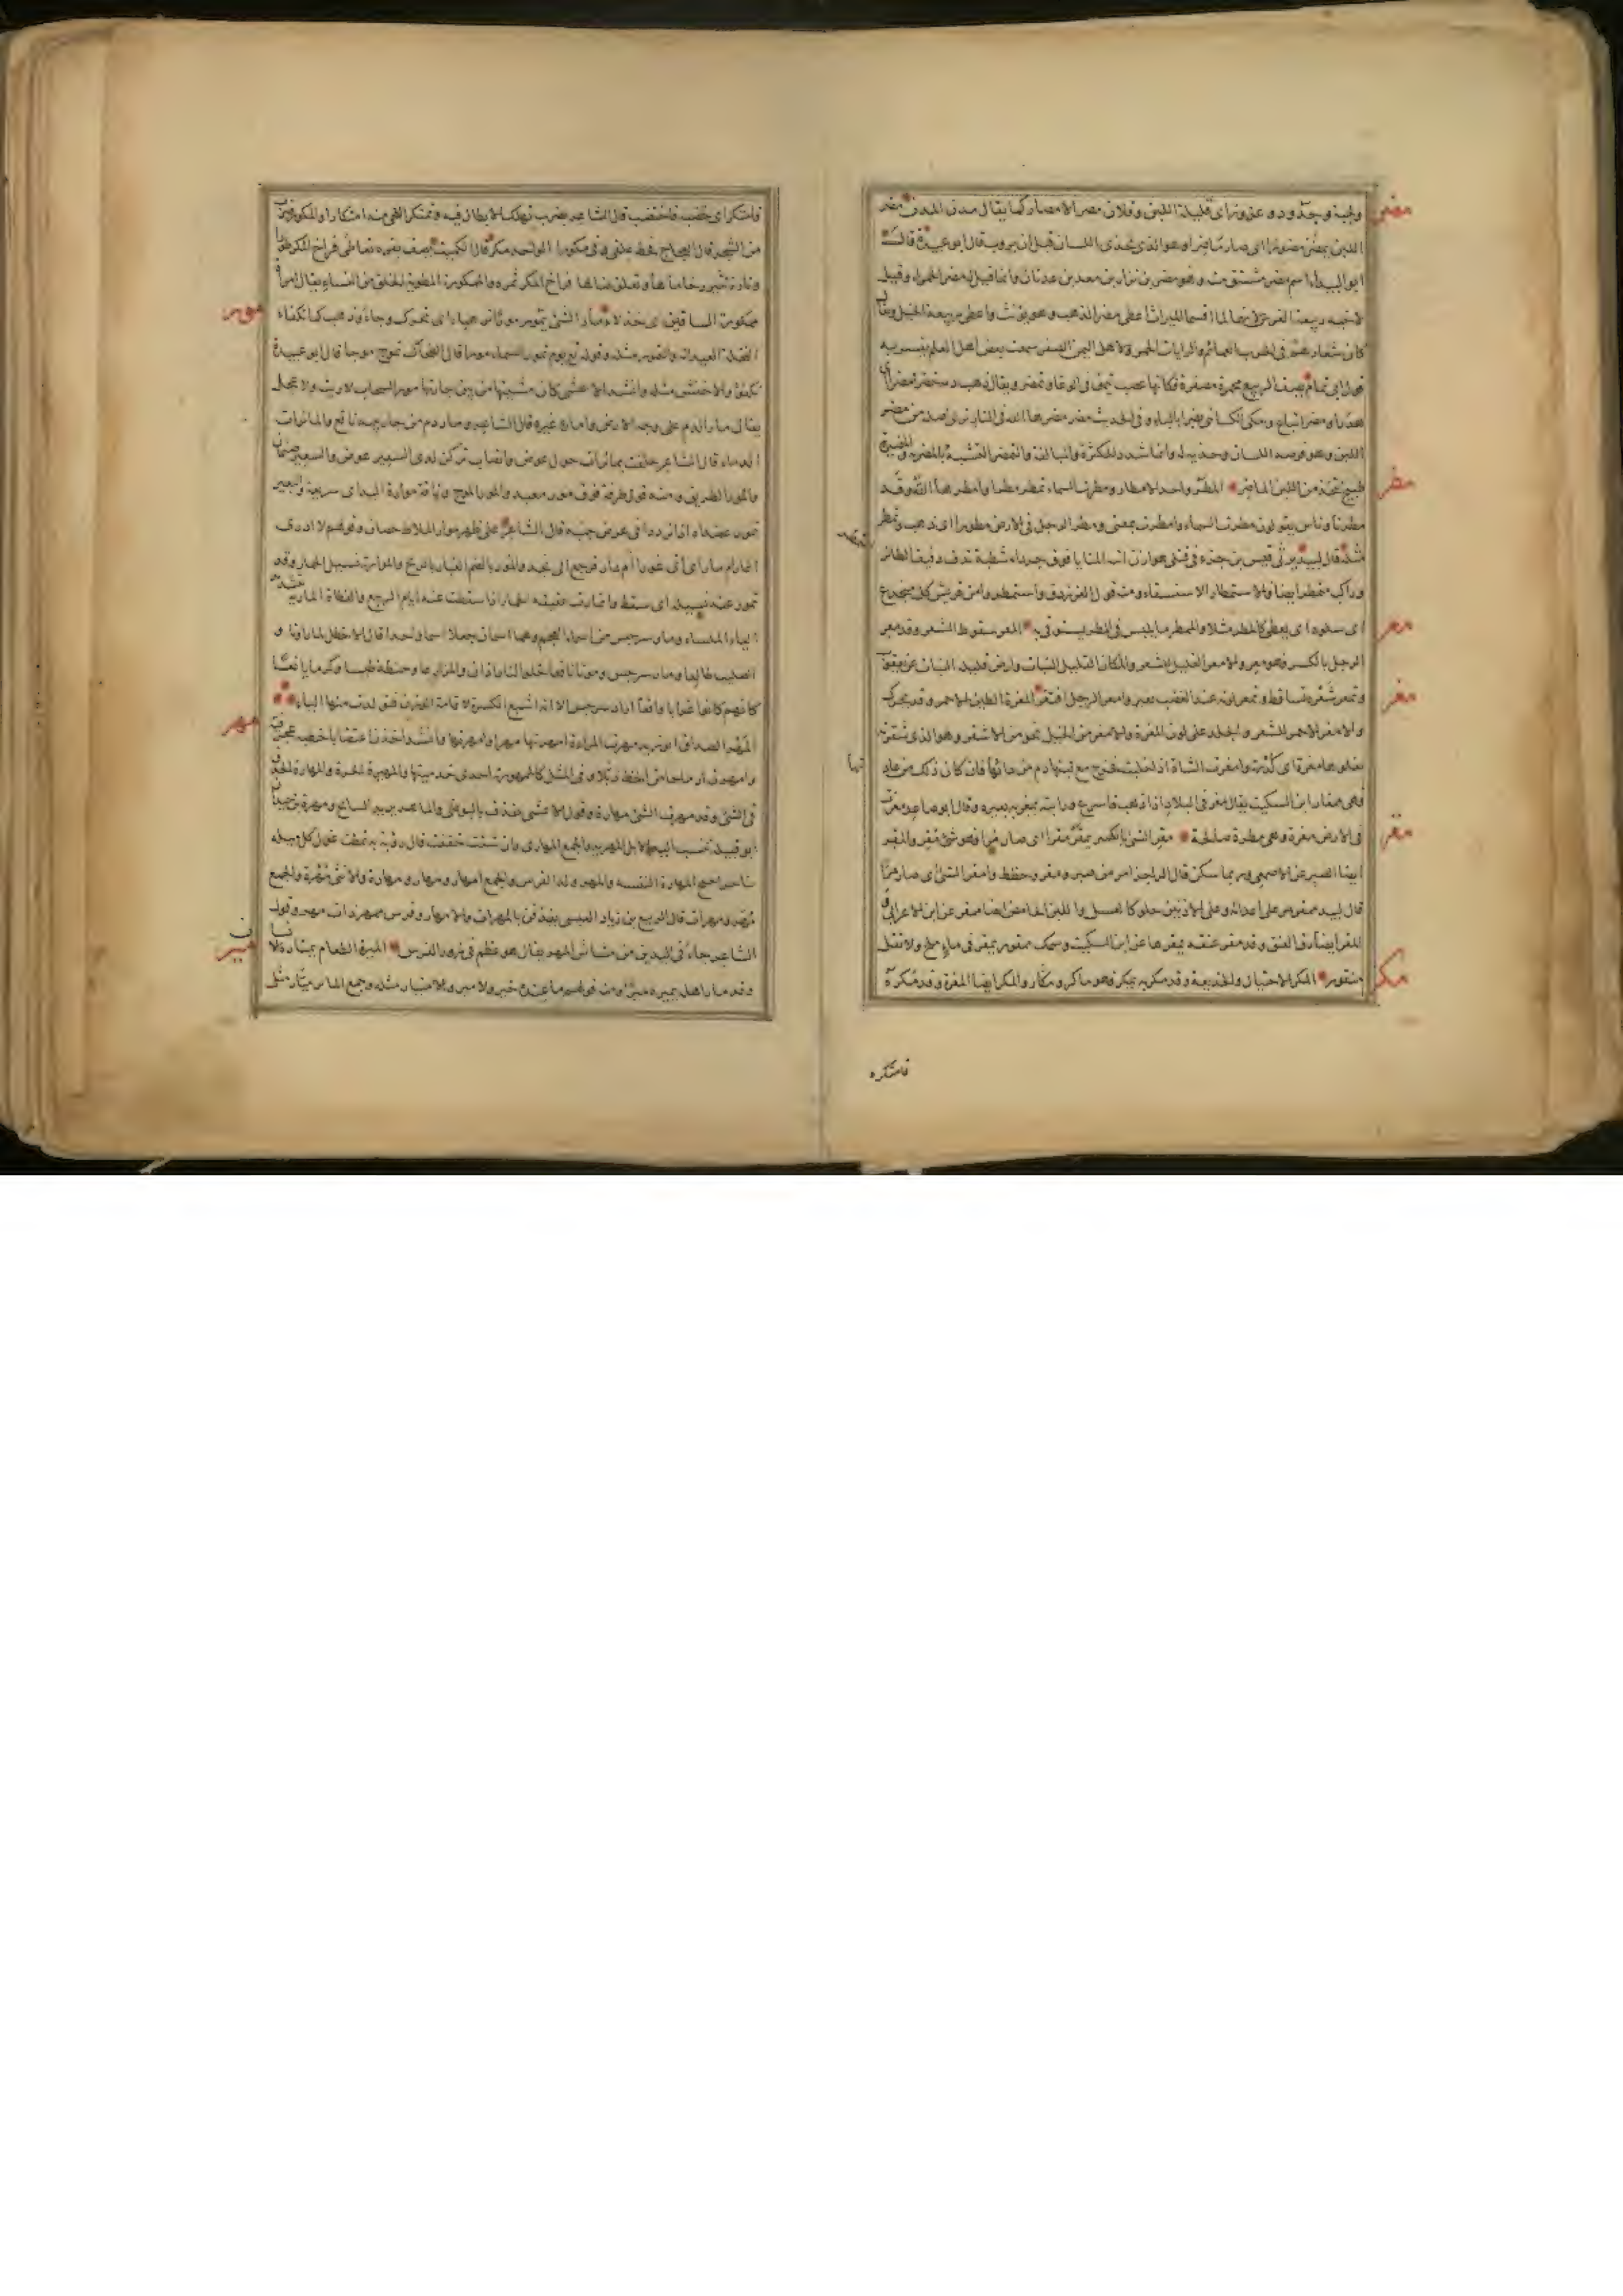 مضر
ولجبة وجدود وعزوز اى قليلة اللبن وفلان مصر الامصار كما يقال مدن المدن مضر
اللبن يمضر مضورا اى صار ماضرا وهو الذى يحذى اللسان قبل ان يروب قال ابو عبيدة قال
ابو البيداء اسم مضر مشتق منه وهو مضر بن نزار بن معد بن عدنان وانما قيل له مضر الحمراء وقيل
لاخيه ربيعة الفرس لانهما لما اقتسما الميراث اعطى مضر الذهب وهو يؤنث واعطى ربيعة الخيل ويقال
كان شعارهم فى الحرب العمائم والرايات الحمر ولاهل اليمن الصفر سمعت بعض اهل العلم يفسر به
قول ابى تمام يصف الربيع محمرة مصفرة فكانها عصب تيمن فى الوغا وتمضر ويقال ذهب دمه خضرا مضرا اى
هدرا ومضر اتباع وحكى الكسائى بضرا بالباء وفى الحديث مضر مضرها الله فى النار نرى اصله من مضر
اللبن وهو قرصه اللسان وحذيه له وانما شدد للكثرة والمبالغة والتمضر التشبه بالمضرية والمضيرة
مطر
طبيخ يتخذ من اللبن الماضر المطر واحد الامطار ومطرت السماء تمطر مطرا وامطرها الله وقد
مطرنا وناس يقولون مطرت السماء وامطرت بمعنى ومطر الرجل فى الارض مطورا اى ذهب وتمطر
مثله قال لبيد يرثى قيس بن جزء فى قتلى هوازن اتته المنايا فوق جرداء شطبة تدف دفيف الطائر
وراكب متمطر ايضا والاستمطار الاستسقاء ومنه قول الفرزدق واستمطروا من قريش كل منخدع
معر
اى سلوه ان يعطى كالمطر مثلا والممطر ما يلبس فى المطر يتوقى به المعر سقوط الشعر وقد معر
الرجل بالكسر فهو معر والامعر القليل الشعر والمكان القليل النبات وارض قليلة النبات عن يعقوب
مغر
وتمعر شعره تساقط وتمعر لونه عند الغضب تغير وامعر الرجل افتقر المغرة الطين الاحمر وقد يحرك
والامغر الاحمر الشعر والجلد على لون المغرة والامغر من الخيل نحو من الاشقر وهو الذى شقرته
تعلوها مغرة اى كدرة وامغرت الشاة اذا حلبت فخرج مع لبنها دم من داء بها فان كان ذلك من عادتها
فهى ممغار ابن السكيت يقال مغر فى البلاد اذا ذهب فاسرع ورايته يمغر به بعيره وقال ابو صاعد مغرت
مقر
فى الارض مغرة وهى مطرة صالحة مقر الشئ بالكسر يمقر مقرا اى صار مرا فهو شئ مقر والمقر
ايضا الصبر عن الاصمعى وربما سكن قال الراجز امر من صبر ومقر وحظظ وامقر الشئ اى صار مرا
قال لبيد ممقر مر على اعدائه وعلى الادنين حلو كالعسل واللبن الحامض ايضا ممقر عن ابن الاعرابى
المقر ايضا دق العنق وقد مقر عنقه يمقرها عن ابن السكيت وسمك ممقور يمقر فى ماء وملح ولا تقل
مكر
منقور المكر الاحتيال والخديعة وقد مكر به يمكر فهو ماكر ومكار والمكر ايضا المغرة وقد مكره
فامتكره
فامتكر اى خضبه فاختضب قال الشاعر بضرب تهلك الابطال فيه وتمتكر اللحى منه امتكارا والمكر ضرب
من الشجر قال العجاج يحط فى علقى وفى مكور الواحد مكر قال الكميت يصف بقره تعاطى فراخ المكر طورا
وتارة تثير رخاماها وتعلق ضالها فراخ المكر ثمره والممكورة المطوية الخلق من النساء يقال امراة
مور
ممكورة الساقين اى خدلاء مار الشئ يمور مورا ترهيا اى تحرك وجاء وذهب كما تكفاء
النخلة العيدانة والتمور مثله وقوله تع يوم تمور السماء مورا قال الضحاك تموج موجا قال ابو عبيدة
تكفؤ والاخفش مثله وانشد الاعشى كان مشيتها من بيت جارتها مور السحاب لا ريث ولا عجل
يقال مار الدم على وجه الارض واماره غيره قال الشاعر ومار دم من جار بيبة ناقع والمائرات
الدماء قال الشاعر حلفت بمائرات حول عوض وانصاب تركن لدى السعير عوض والسعير صنمان
والمور الطريق ومنه قول طرفة فوق مور معبد والمور الموج وناقة موارة اليد اى سريعة والبعير
تمور عضداه اذا ترددا فى عرض جنبه قال الشاعر على ظهر موار الملاط حصان وقولهم لا ادرى
اغار ام مار اى اتى غورا ام دار فرجع الى نجد والمور بالضم الغبار بالريح والموارة نسيل الحمار وقد
تمور عنه نسيله اى سقط وانمارت عقيقة الحمار اذا سقطت عنه ايام الربيع والقطاة المارية بتشديد
الياء الملساء ومار سرجس من اسماء العجم وهما اسمان جعلا اسما واحدا قال الاخطل لما راونا و
الصليب طالعا ومار سرجيس وموتا ناقعا خلوا لنا راذان والمزارعا وحنطة طيسا وكرما يانعا
كانهم كانوا غرابا واقعا اراد سرجس الا انه اشبع الكسرة لاقامة الوزن فتولدت منها الياء
مهر
المهر الصداق ابو زيد مهرت المراة امهرها مهرا وامهرتها وانشد اخذن اغتصابا خطبة عجرفية
وامهرن ارماحا من الخط ذبلا وفى المثل كالممهورة احدى خدمتيها والمهيرة الحرة والمهارة الحذق
فى الشئ وقد مهرت الشئ مهارة وقول الاعشى يقذف بالبوصى والماهر يريد السابح ومهرة بن حيدان
ابو قبيلة تنسب اليها الابل المهرية والجمع المهارى وان شئت خففت قال رؤبة به تمطت غول كل ميله
بنا حراجيج المهارى النفه والمهر ولد الفرس والجمع امهار ومهار ومهارة والانثى مهرة والجمع
مهر ومهرات قال الربيع بن زياد العبسى يقذفن بالمهرات والامهار وفرس ممهر ذات مهر وقول
مير
الشاعر جافى اليدين عن مشاش المهر يقال هو عظم فى زور الفرس الميرة الطعام يمتاره الانسان
وقد مار اهله يميرهم ميرا ومنه قولهم ما عنده خير ولا مير والامتيار مثله وجمع المائر ميار مثل